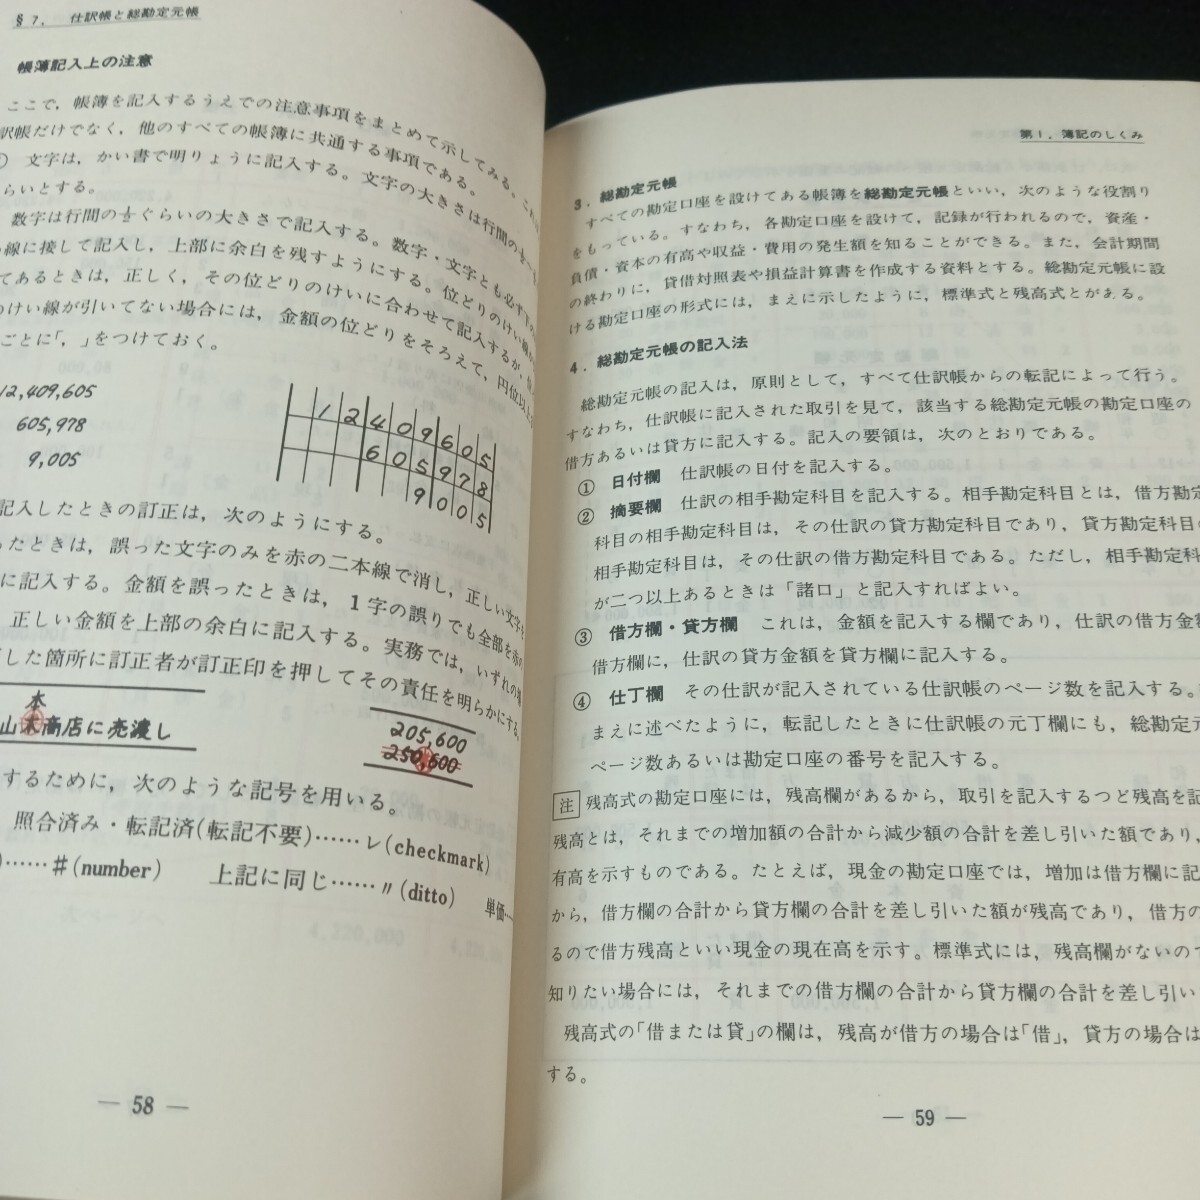 §7. 仕訳帳と総勘定元帳
帳簿記入上の注意
ここで，帳簿を記入するうえでの注意事項をまとめて示してみる。これは
訳帳だけでなく，他のすべての帳簿に共通する事項である。
文字は，かい書で明りょうに記入する。文字の大きさは行間の
らいとする。
数字は行間の ぐらいの大きさで記入する。数字・文字とも必ず下の
線に接して記入し，上部に余白を残すようにする。位どりのけい線が
てあるときは，正しく，その位どりのけいに合わせて記入するが，位
のけい線が引いてない場合には，金額の位どりをそろえて，円位以上
ごとに「，」をつけておく。
12,409,605
605,978
9,005
1 2 4 0 9 6 0 5
6 0 5 9 7 8
9 0 0 5
記入したときの訂正は，次のようにする。
ったときは，誤った文字のみを赤の二本線で消し，正しい文字を
に記入する。金額を誤ったときは，1字の誤りでも全部を赤の
正しい金額を上部の余白に記入する。実務では，いずれの場
した箇所に訂正者が訂正印を押してその責任を明らかにする。
本
山木商店に売渡し
205,600
250,600
するために，次のような記号を用いる。
照合済み・転記済(転記不要)……レ(checkmark)
)……＃(number) 上記に同じ……〃(ditto) 単価……
— 58 —
第1．簿記のしくみ
3．総勘定元帳
すべての勘定口座を設けてある帳簿を総勘定元帳といい，次のような役割り
をもっている。すなわち，各勘定口座を設けて，記録が行われるので，資産・
負債・資本の有高や収益・費用の発生額を知ることができる。また，会計期間
の終わりに，貸借対照表や損益計算書を作成する資料とする。総勘定元帳に設
ける勘定口座の形式には，まえに示したように，標準式と残高式とがある。
4．総勘定元帳の記入法
総勘定元帳の記入は，原則として，すべて仕訳帳からの転記によって行う。
すなわち，仕訳帳に記入された取引を見て，該当する総勘定元帳の勘定口座の
借方あるいは貸方に記入する。記入の要領は，次のとおりである。
① 日付欄 仕訳帳の日付を記入する。
② 摘要欄 仕訳の相手勘定科目を記入する。相手勘定科目とは，借方勘定
科目の相手勘定科目は，その仕訳の貸方勘定科目であり，貸方勘定科目の
相手勘定科目は，その仕訳の借方勘定科目である。ただし，相手勘定科
が二つ以上あるときは「諸口」と記入すればよい。
③ 借方欄・貸方欄 これは，金額を記入する欄であり，仕訳の借方金額
借方欄に，仕訳の貸方金額を貸方欄に記入する。
④ 仕丁欄 その仕訳が記入されている仕訳帳のページ数を記入する。
まえに述べたように，転記したときに仕訳帳の元丁欄にも，総勘定元
ページ数あるいは勘定口座の番号を記入する。
注 残高式の勘定口座には，残高欄があるから，取引を記入するつど残高を記
残高とは，それまでの増加額の合計から減少額の合計を差し引いた額であり，
有高を示すものである。たとえば，現金の勘定口座では，増加は借方欄に記
から，借方欄の合計から貸方欄の合計を差し引いた額が残高であり，借方の
るので借方残高といい現金の現在高を示す。標準式には，残高欄がないので
知りたい場合には，それまでの借方欄の合計から貸方欄の合計を差し引い
残高式の「借または貸」の欄は，残高が借方の場合は「借」，貸方の場合は
する。
— 59 —